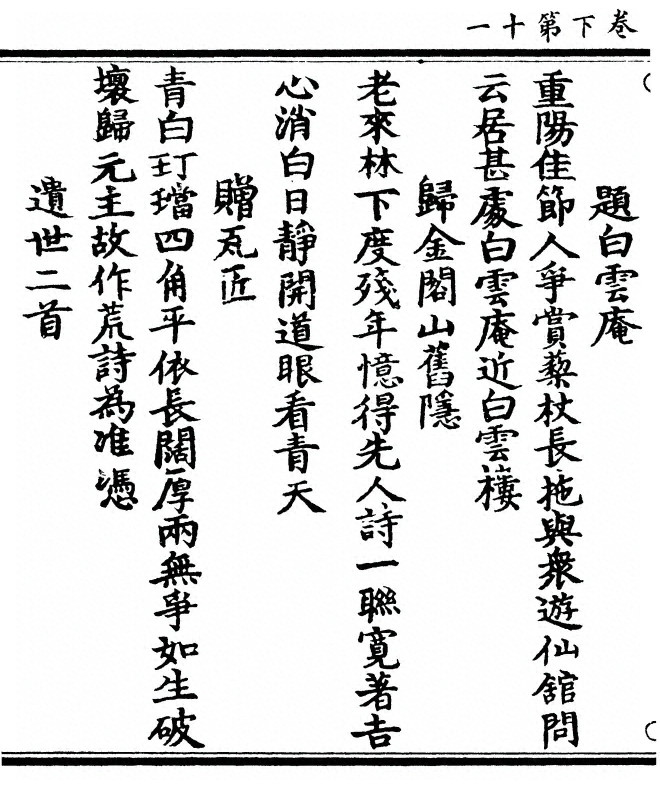 卷下第十一
題白雲庵
重陽佳節人爭賞藜杖長拖與衆遊仙舘問
云居甚處白雲庵近白雲樓
歸金閣山舊隱
老來林下度殘年憶得先人詩一聯寬著吉
心消白日靜開道眼看青天
贈瓦匠
青白玎璫四角平依長闊厚兩無爭如生破
壞歸元主故作荒詩為准憑
遺世二首